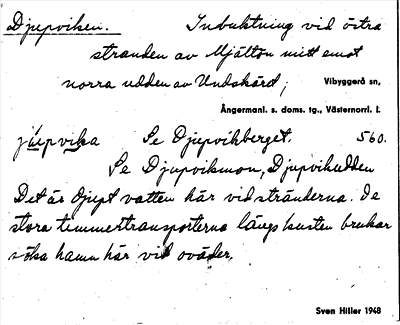 Djupviken. Inbuktning vid östra
stranden av Mjältön mitt emot
norra udden av Undskärd; Vibyggerå sn,
Ångermanl. s. doms. tg., Västernorrl. l.
Se Djupvikberget. 560.
Se Djupvikmon, Djupvikudden
Det är djupt vatten här vid stränderna. De
stora timmertransporterna längs kusten brukar
söka hamn här vid oväder.
Sven Hiller 1948